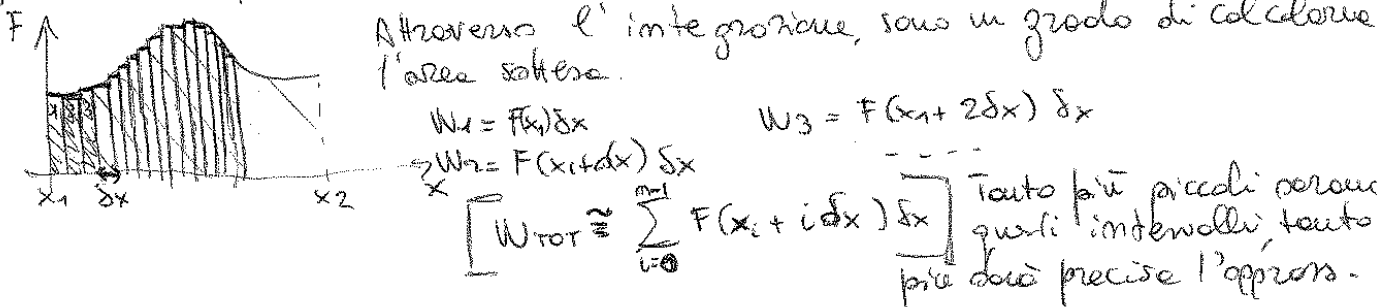 F
Attraverso l'integrazione, sono in grado di calcolarne
l'area sottesa.
W1 = F(x1)δx
W3 = F(x1 + 2δx) δx
W2 = F(xi+dx) δx
- - - -
x1 δx x2 x
[ WTOT ≅ ∑ i=0 n-1 F(xi + i δx) δx ]
Tanto più piccoli saranno
questi intervalli, tanto
più sarà precisa l'appross.